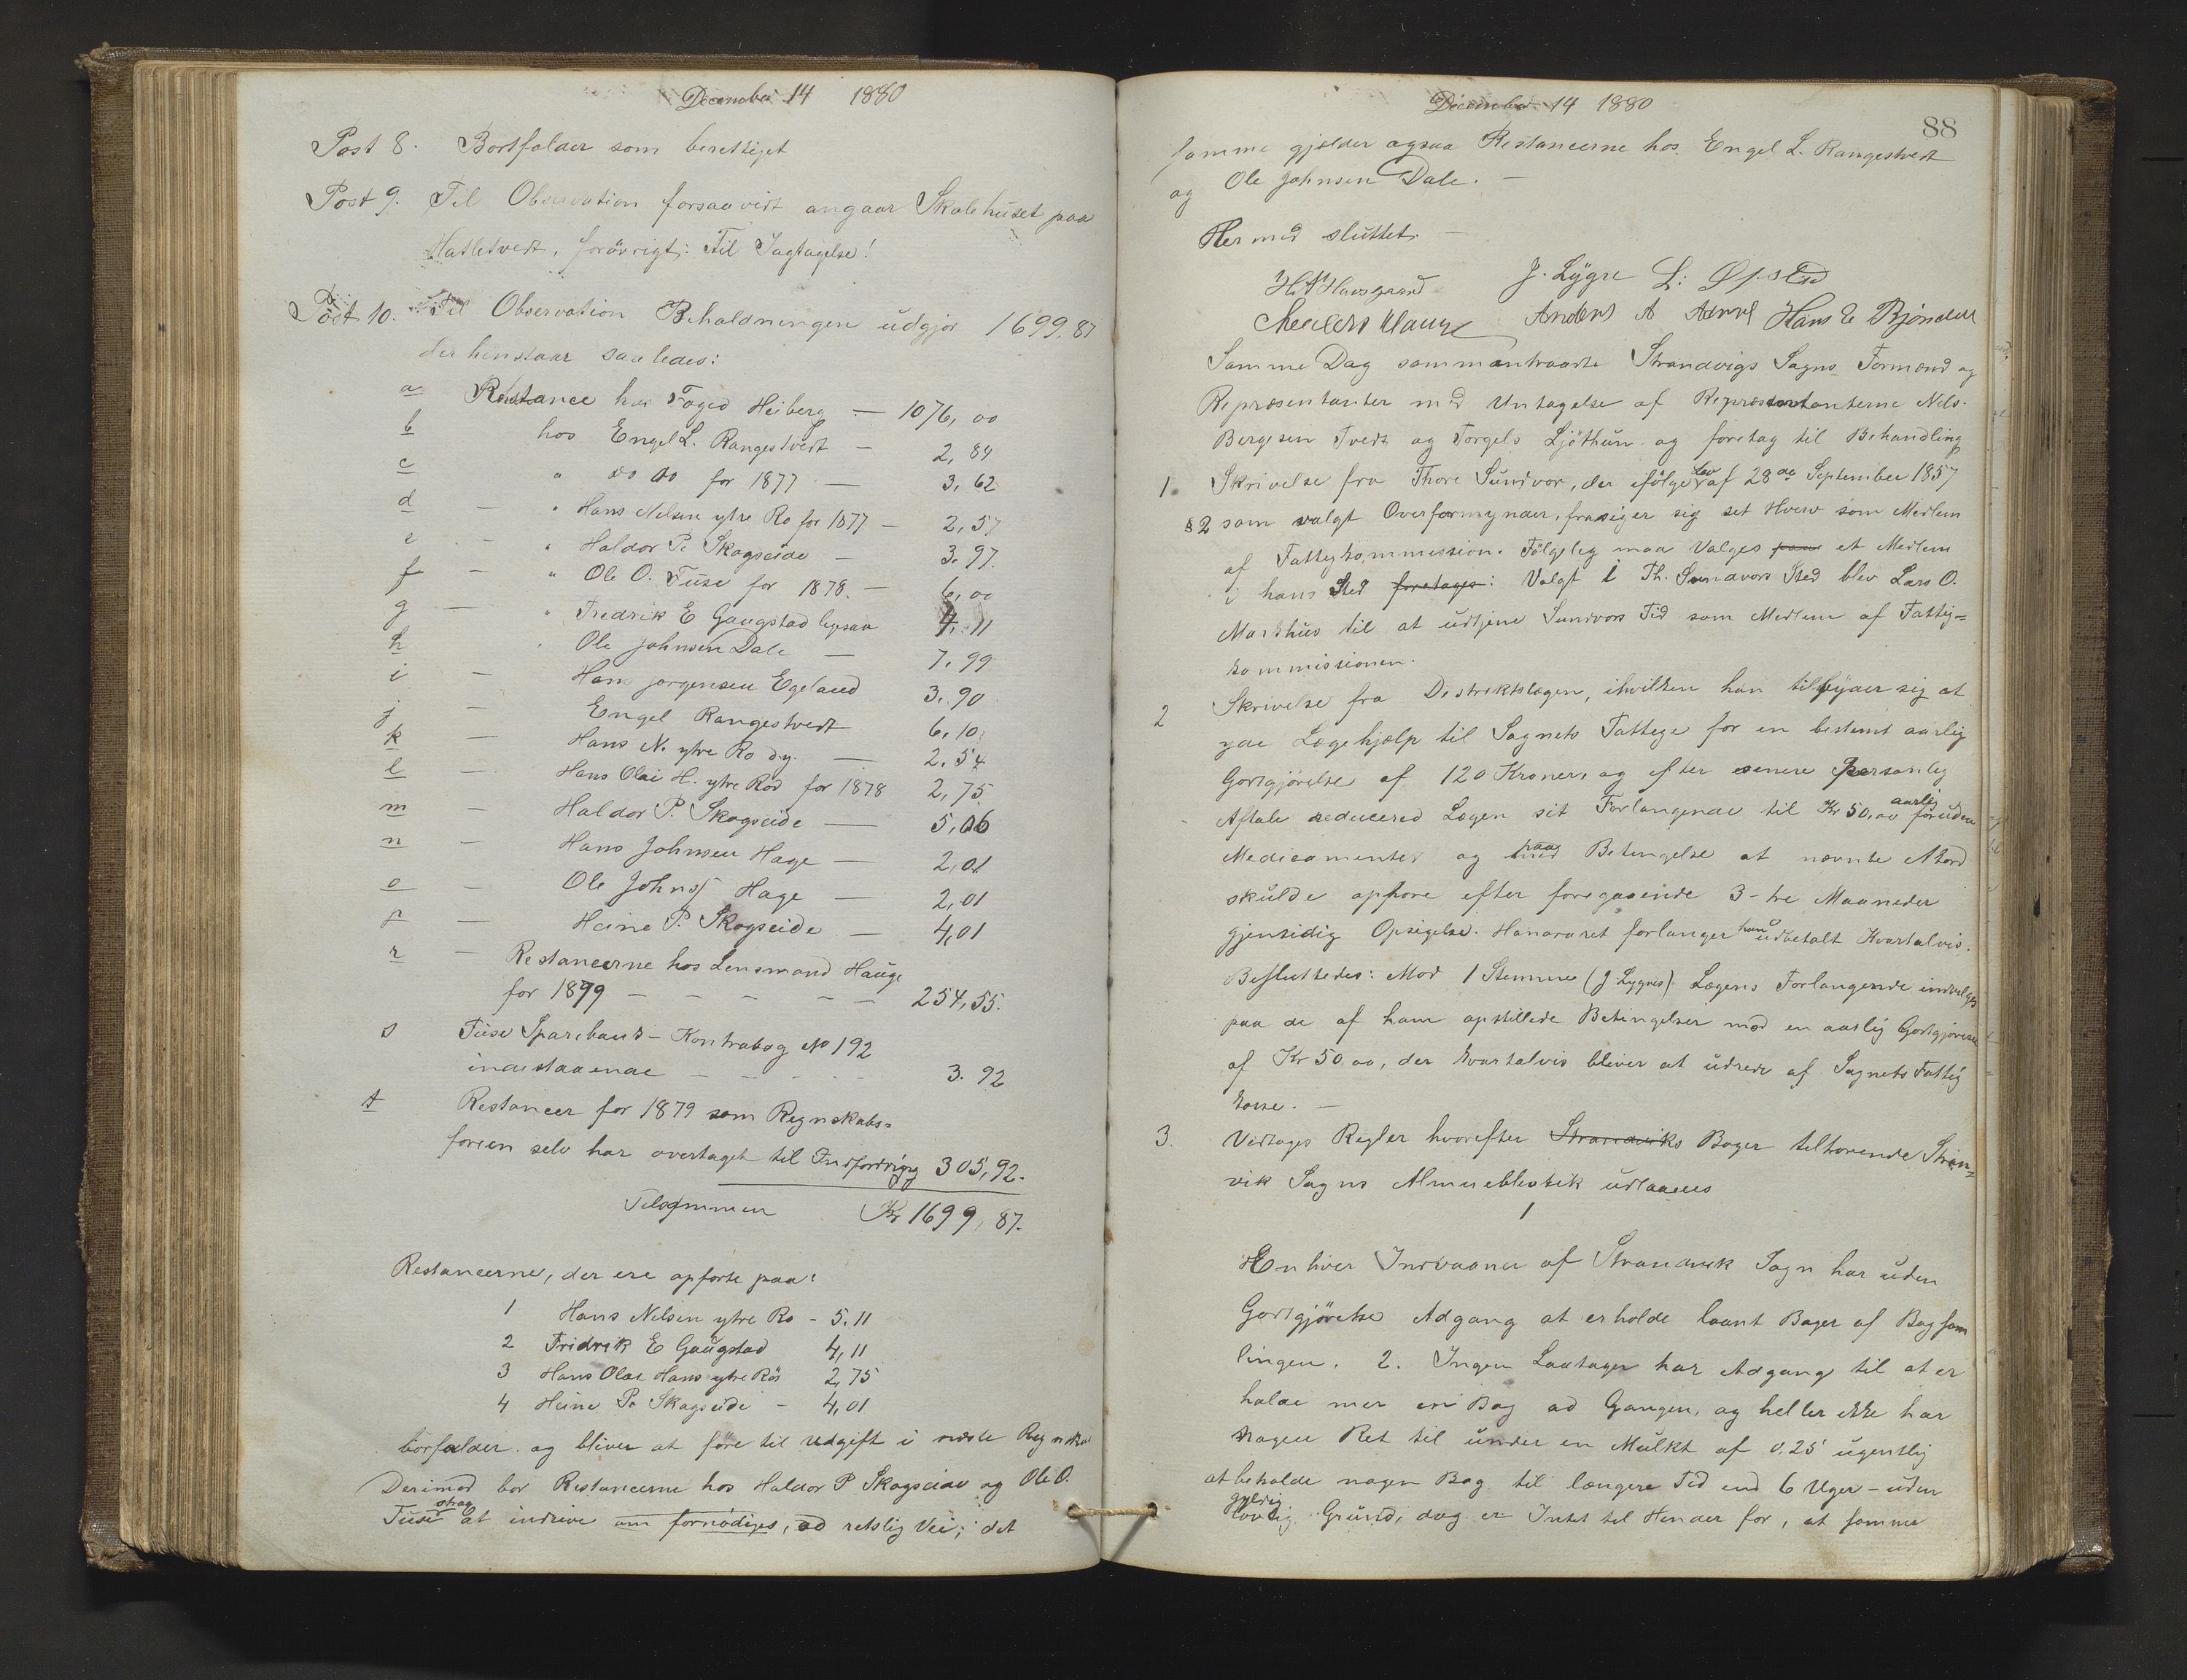 December 14 1880
Post 8. Bortfalder som berettiget
Post 9. Til Observation forsaavidt angaar Skolehuset paa
Hatletvedt, forövrigt: Til Iagtagelse!
Post 10. Til Observation Beholdningen udgjør 1699,87
der henstaar saaledes:
a Restance hos Foged Heiberg — 1076,00
b hos Engel L. Rangestvedt — 2,84
c " do do for 1877 — 3,62
d — " Hans Nilsen ytre Ro for 1877 — 2,57
e - " Haldor P. Skogseide — 3.97.
f — " Ole O. Fuse for 1878. — 6,00
g — " Fredrik E Gaugstad ligesaa 4.11
h " Ole Johnsen Dale — 7.99
i — Hans Jørgensen Egeland 3.90
j — Engel Rangestvedt 6.10
k — Hans N. ytre Ro d.y. — 2.54
l — Hans Olai H. ytre Rød for 1878 2,75
m — Haldor P. Skogseide — 5,06
n - Hans Johnsen Hage — 2,01
o - Ole Johns. Hage — 2,01
p — Heine P. Skogseide — 4,01
r — Restancerne hos Lensmand Hauge
for 1879 — — — — — 254,55.
s Fuse Sparebank - Kontrabog No 192
indestaaende — — - - - 3.92
t Restancer for 1879 som Regnskabs=
føreren selv har overtaget til Indfordring 305,92.
Tilsammen Kr 1699,87.
Restancerne, der ere opførte paa:
1 Hans Nilsen ytre Ro - 5.11
2 Fridrik E Gaugstad 4,11
3 Hans Olai Hans ytre Rö 2,75
4 Heine P. Skogseide - 4,01
borfalder og bliver at före til Udgift i næste Regnskab
Derimod bør Restancerne hos Haldor P Skogseide og Ole O.
Fuse strax at inddrive om fornødiges, ad retslig Vei; det
December 14 1880
88
samme gjælder ogsaa Restancerne hos Engel L. Rangestvedt
og Ole Johnsen Dale. —
Hermed sluttet. —
J. Lygre L: Øpstad
Anders A Hans E Bjöndal
Samme Dag sammentraadte Strandvigs Sogns Formænd og
Repræsentanter med Untagelse af Repræsentanterne Nils
Bergesen Tvedt og Torgels Ljöthun og foretog til Behandling
1. Skrivelse fra Thore Sundvor, der ifölge Lov af 28de September 1857
§ 2 som valgt Overformynder, frasiger sig set Hverv som Medlem
af Fattigkommission. Fölgelig maa Valges et Medlem
i hans Sted foretages: Valgt i Th. Sundvors Sted blev Lars O.
Marshus til at udtjene Sundvors Tid som Medlem af Fattig=
kommissionen.
2 Skrivelse fra Distriktslægen, ihvilken han tilbyder sig at
yde Lægehjælp til Sognets Fattige for en bestemt aarlig
Godtgjörelse af 120 Kroner, og efter senere personlig
Aftale reducered Lægen sit Forlangende til Kr 50,00 aarlig foruden
Medicamenter og med paa Betingelse at nævnte Akord
skulde ophøre efter foregaaende 3-tre Maaneder
gjensidig Opsigelse. Honoraret forlanger han udbetalt Kvartalvis.
Besluttedes: Mod 1 Stemme (J Lygres) Lægens Forlangende indvilges
paa de af ham opstillede Betingelser mod en aarlig Godtgjörelse
af Kr 50.00, der kvartalvis bliver at udrede af Sognets Fattig
kasse. —
3. Vedtages Regler hvorefter Strandviks Bøger tilhørende Stran=
vik Sogns Almuebliotek udlaanes
1
Enhver Indvaaner af Strandvik Sogn har uden
Godtgjörelse Adgang at erholde laant Bøger af Bogsam
lingen. 2. Ingen Laatager har Adgang til at er
holde mer en Bog ad Gangen, og heller ikke har
nogen Ret til under en Mulkt af 0,25 ugentlig
at beholde nogen Bog til længere Tid end 6 Uger - uden
gyldig lovlig Grund, dog er Intet til Hinder for, at samme